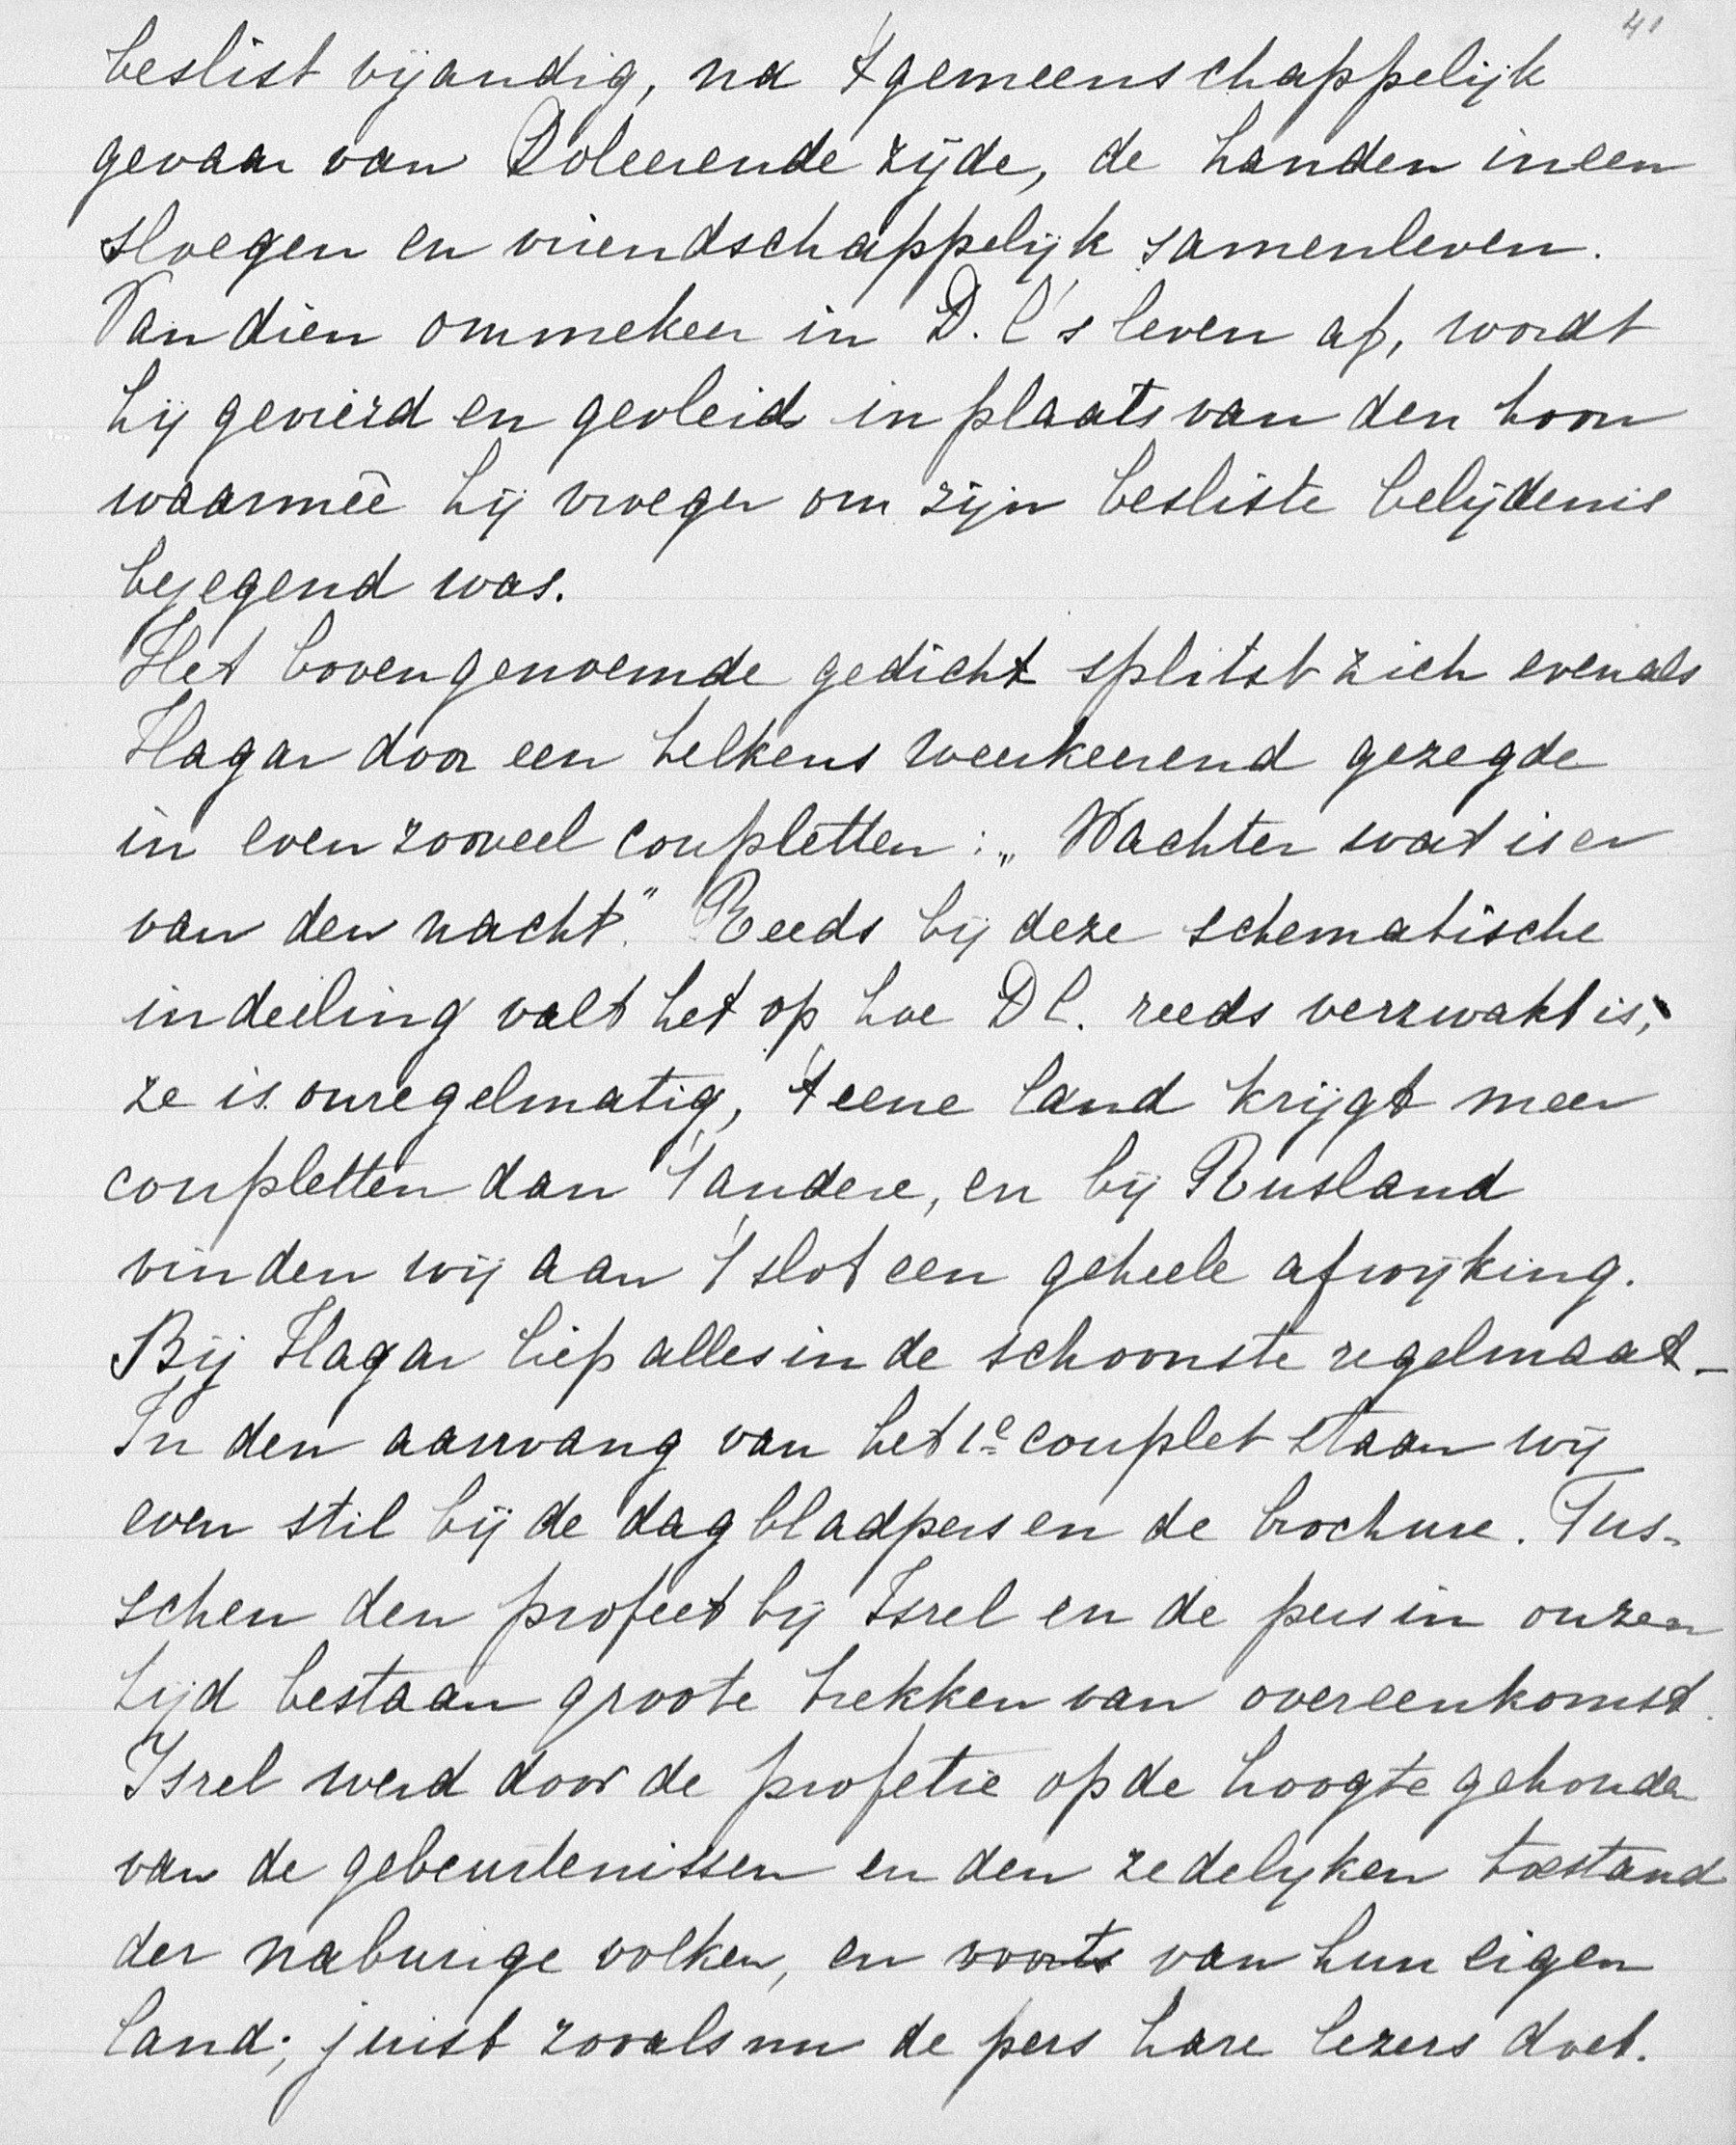 41
beslist vijandig, na 't gemeenschappelijk
gevaar van Doleerende zijde, de handen ineen
sloegen en vriendschappelijk samenleven.
Van dien ommekeer in D. C's leven af, wordt
hij gevierd en gevleid in plaats van den hoon
waarmeê hij vroeger om zijn besliste belijdenis
bejegend was.
Het bovengenoemde gedicht splitst zich evenals
Hagar door een telkens weerkeerend gezegde
in even zooveel coupletten: „Wachter wat is er
van den nacht". Reeds bij deze schematische
indeeling valt het op hoe D C. reeds verzwakt is,
ze is onregelmatig, 't eene land krijgt meer
coupletten dan 't andere, en bij Rusland
vinden wij aan 't slot een geheele afwijking.
Bij Hagar liep alles in de schoonste regelmaat_
In den aanvang van het 1e couplet staan wij
even stil bij de dagbladpers en de brochure. Tus-
schen den profeet bij Isrel en de pers in onzen
tijd bestaan groote trekken van overeenkomst.
Isrel werd door de profetie op de hoogte gehouden
van de gebeurtenissen en den zedelijken toestand
der naburige volken, en voorts van hun eigen
land; juist zooals nu de pers hare lezers doet.